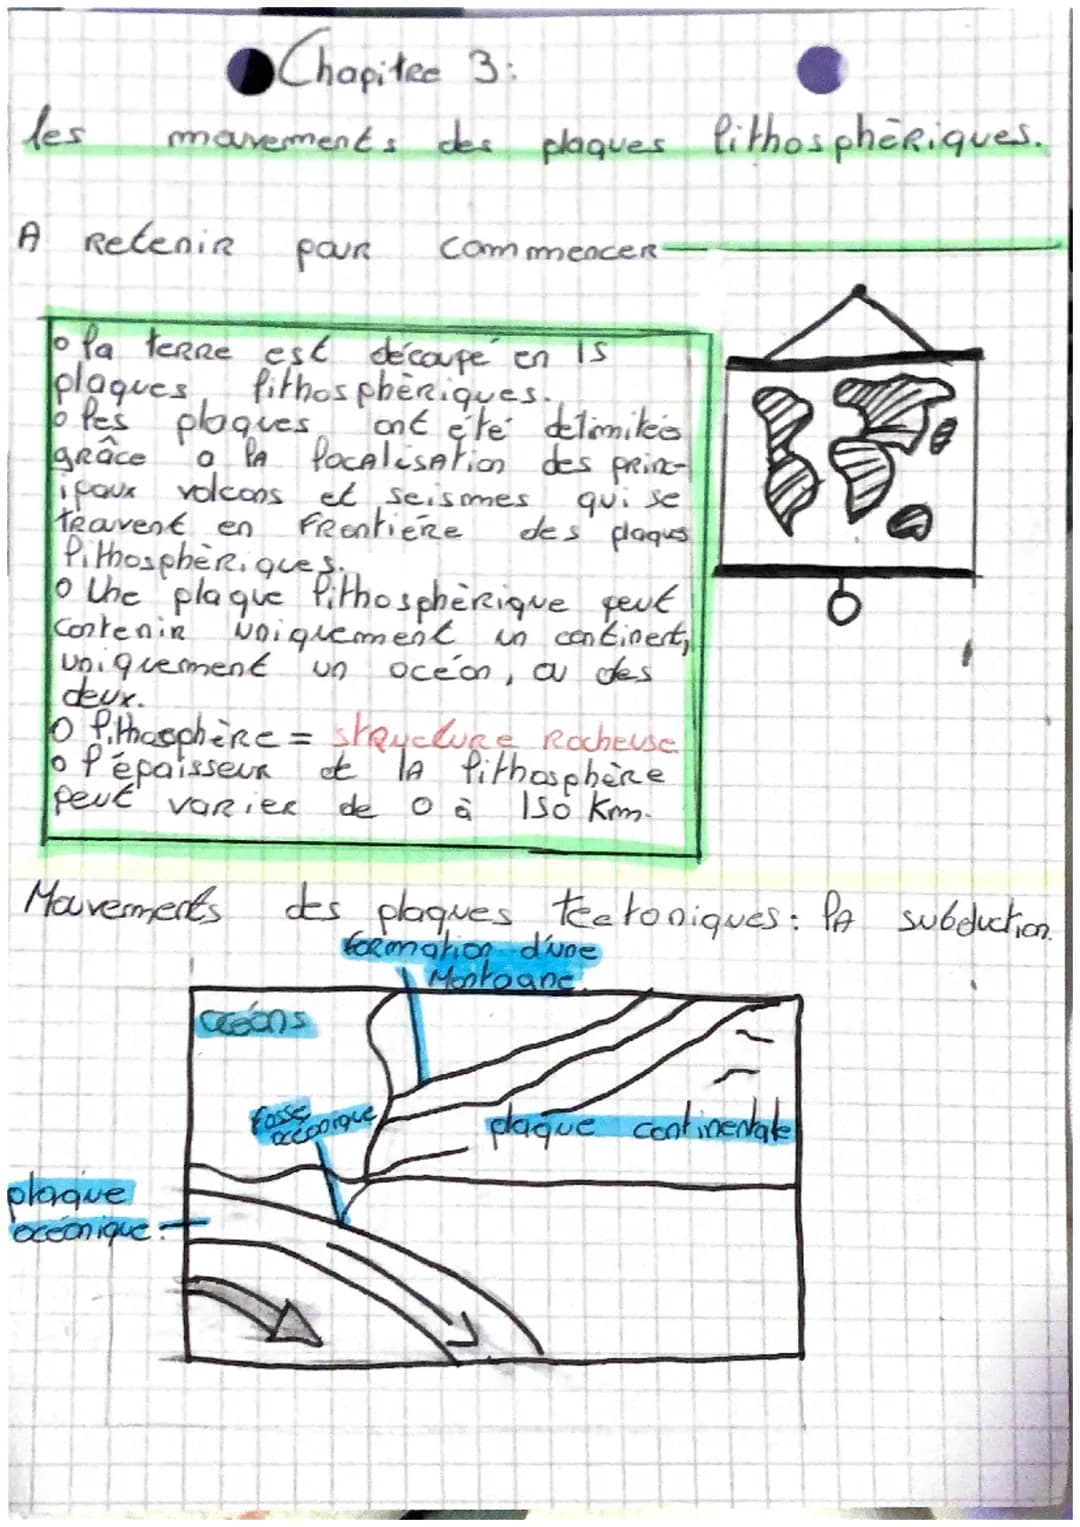 Chapitre 3:
les mouvements des plaques lithosphèriques.
A Retenir pour commencer
o la terre est découpé en 15
plaques lithosphèriques.
o les plaques ont été delimitées
grâce a la localisation des princ-
ipaux volcans et seismes qui se
trouvent en Frontière des plaques
lithosphèriques.
o Une plaque lithosphèrique peut
contenir uniquement un continent,
uniquement un océan, ou des
deux.
o lithosphère = structure Rocheuse
o l'épaisseur de la lithosphère
peut varier de 0 à 150 Km.
Mouvements des plaques tectoniques: la subduction.
formation d'une
Montagne.
océans
fosse
océanique
plaque continentale
plaque
océanique: